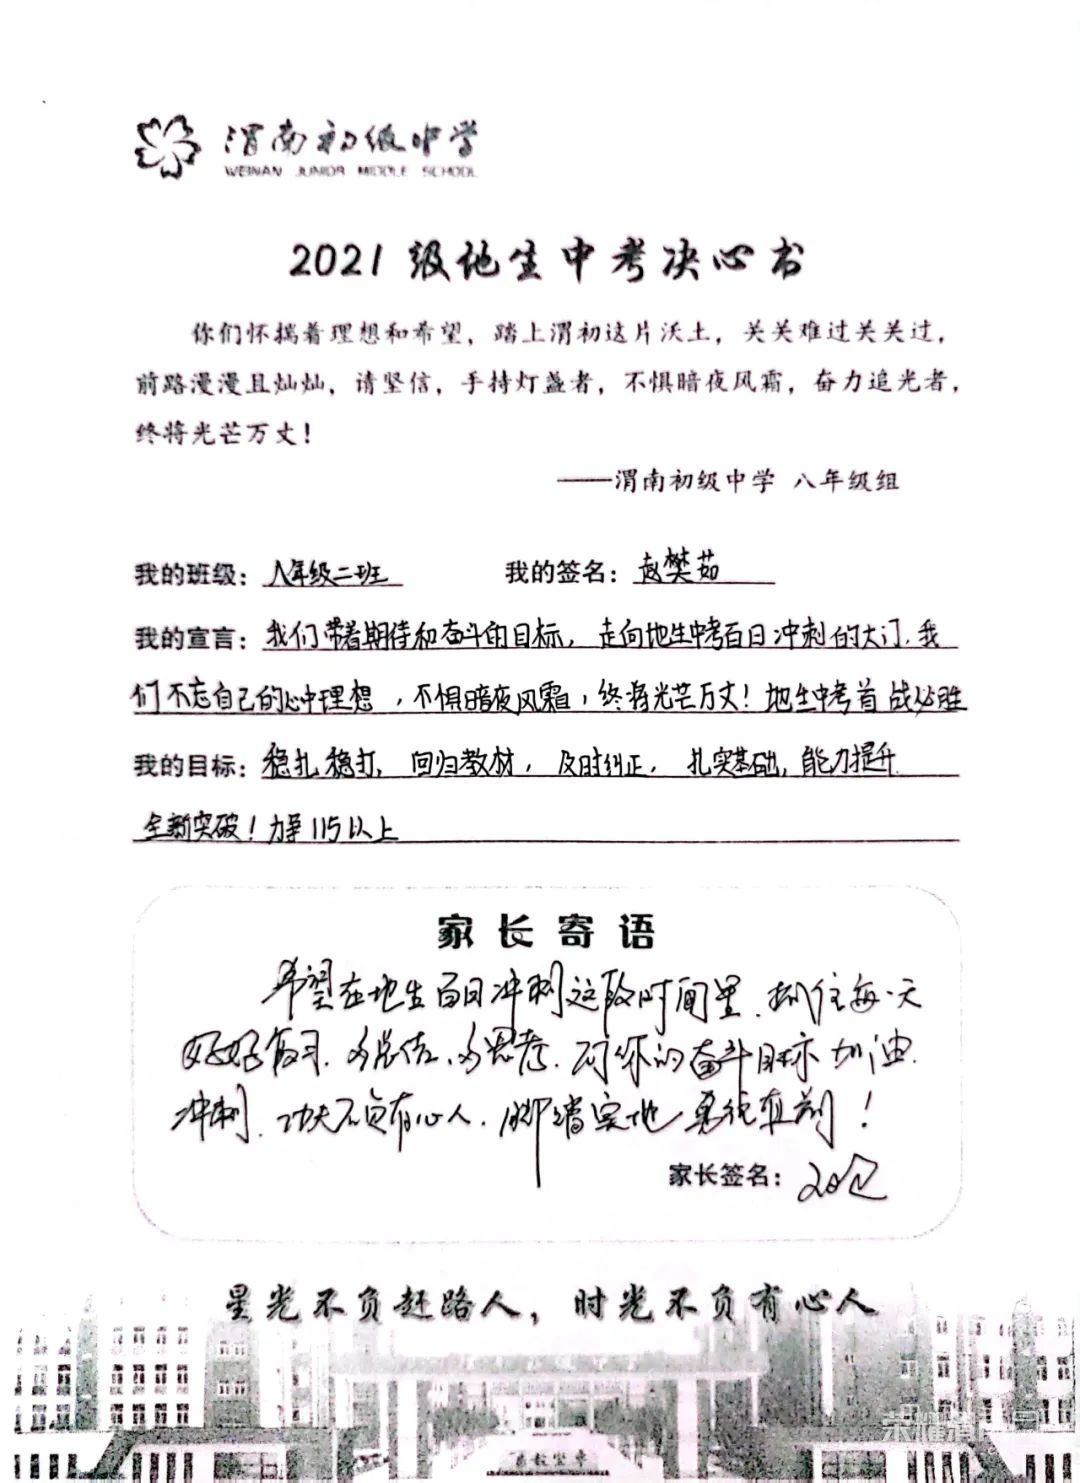 渭南初级中学
WEINAN JUNIOR MIDDLE SCHOOL
2021级地生中考决心书
你们怀揣着理想和希望，踏上渭初这片沃土，关关难过关关过，
前路漫漫且灿灿，请坚信，手持灯盏者，不惧暗夜风霜，奋力追光者，
终将光芒万丈！
——渭南初级中学 八年级组
我的班级：八年级二班 我的签名：赵樊茹
我的宣言：我们带着期待和奋斗的目标，走向地生中考百日冲刺的大门.我
们不忘自己的心中理想，不惧暗夜风霜，终将光芒万丈！地生中考首战必胜
我的目标：稳扎稳打，回归教材，及时纠正，扎实基础，能力提升
全新突破！力争115以上
家长寄语
希望在地生百日冲刺这段时间里.抓住每一天
好好复习.多总结、多思考.向你的奋斗目标加油.
冲刺.功夫不负有心人.脚踏实地 勇往直前！
家长签名：
星光不负赶路人，时光不负有心人